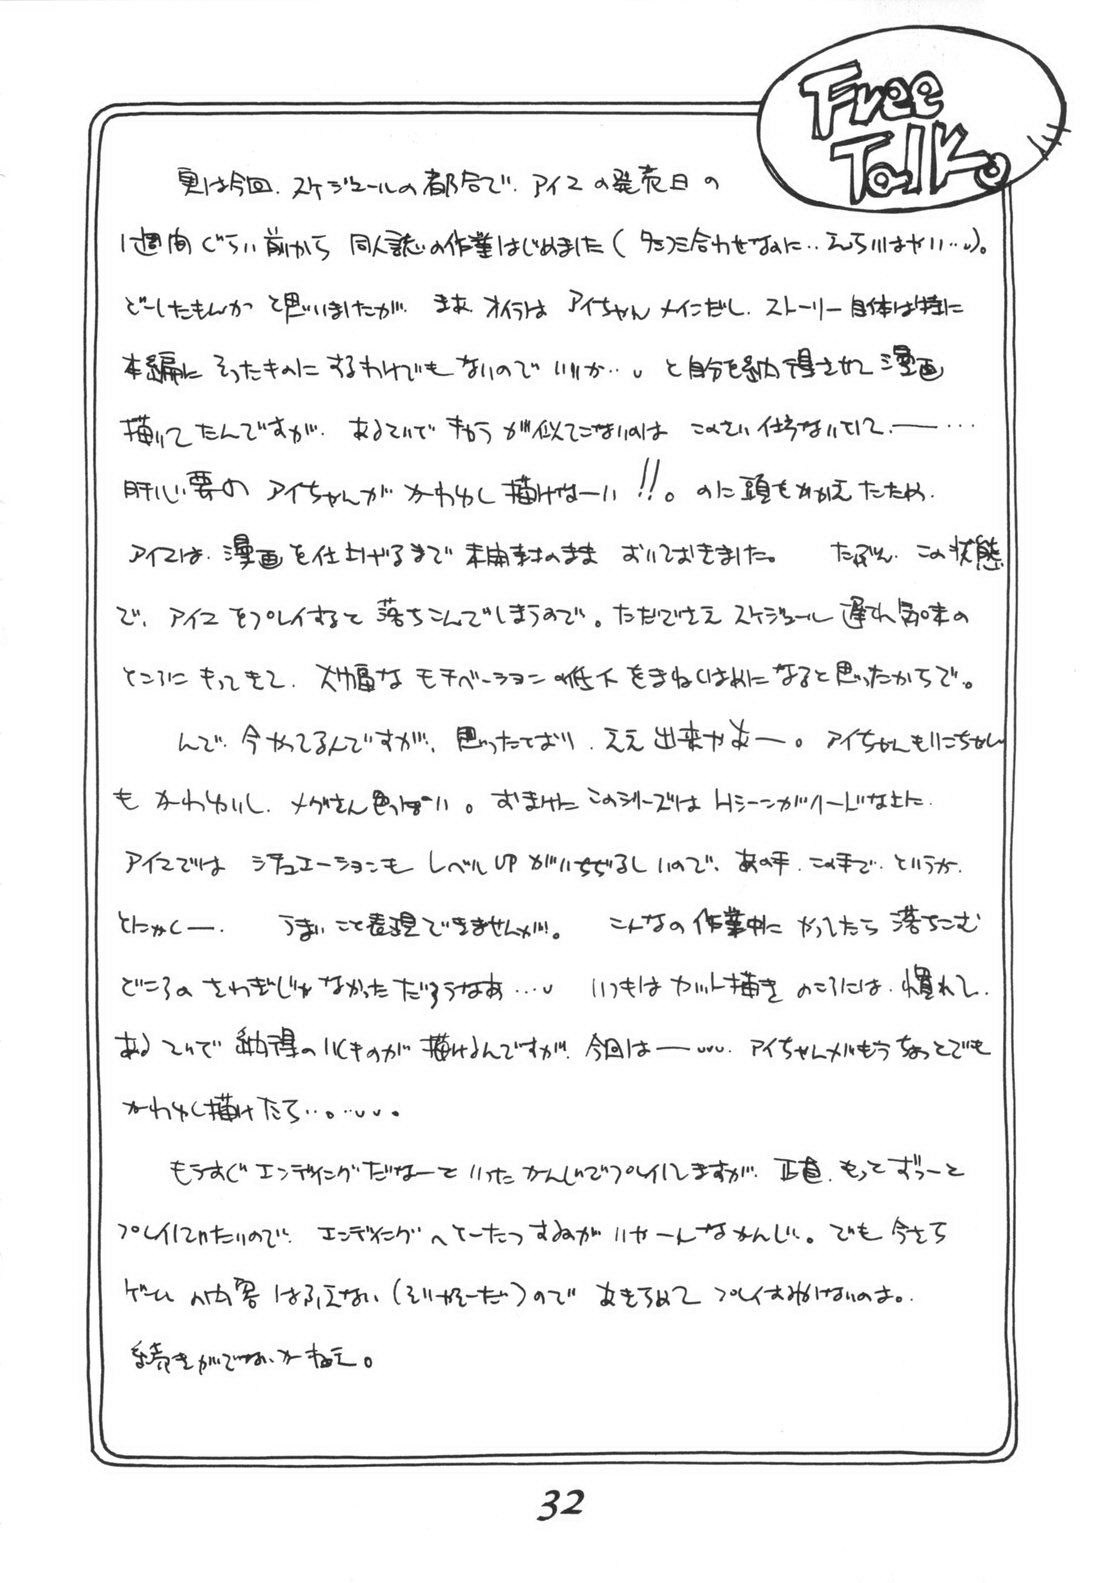 Free
Talk。
実は今回、スケジュールの都合で、アイ2の発売日の
1週間ぐらい前から同人誌の作業はじめました(タンフミ合わせなのに‥えらいはやい‥)。
どーしたもんかと思いましたが、まあ、オイラはアイちゃんメインだし、ストーリー自体は特に
本編にそったものにするわけでもないのでいいか‥と自分を納得させて漫画
描いてたんですが、あるていどキャラが似てこないのはこのさい仕方ないていて、――…
肝心要のアイちゃんがかわゆく描けなーい!!。のに頭をかかえたため、
アイ2は、漫画を仕上げるまで未開封のままおいておきました。たぶん、この状態
で、アイ2をプレイすると落ちこんでしまうので。ただでさえスケジュール遅れ気味の
ところにもってきて、大幅なモチベーションの低下をまねくはめになると思ったからで。
んで、今やってるんですが、思ったとおり、ええ出来やあー。アイちゃんもりこちゃん
もかわゆいし、メグさん色っぽい。おまけにこのシリーズはHシーンがハードな上に、
アイ2ではシチュエーションもレベルUPがいちぢるしいので、あの手、この手で、というか、
とにかくー、うまいこと表現できませんが。こんなの作業中にやってたら落ちこむ
どころのさわぎじゃなかっただろうなあ…いつもはカット描きのころには、慣れて、
あるていど納得のいくものが描けるんですが、今回はー、アイちゃんがもうちょっとでも
かわゆく描けたら‥。‥。
もうすぐエンディングだなーといったかんじでプレイしてますが、正直、もっとずーっと
プレイしていたいので、エンディングへとーたつするのがいやーんなかんじ。でも今さら
ゲームの内容はふえない(そりゃそーだ)のであきらめてプレイはみかけないのよ。
続きがでないかねえ。
32